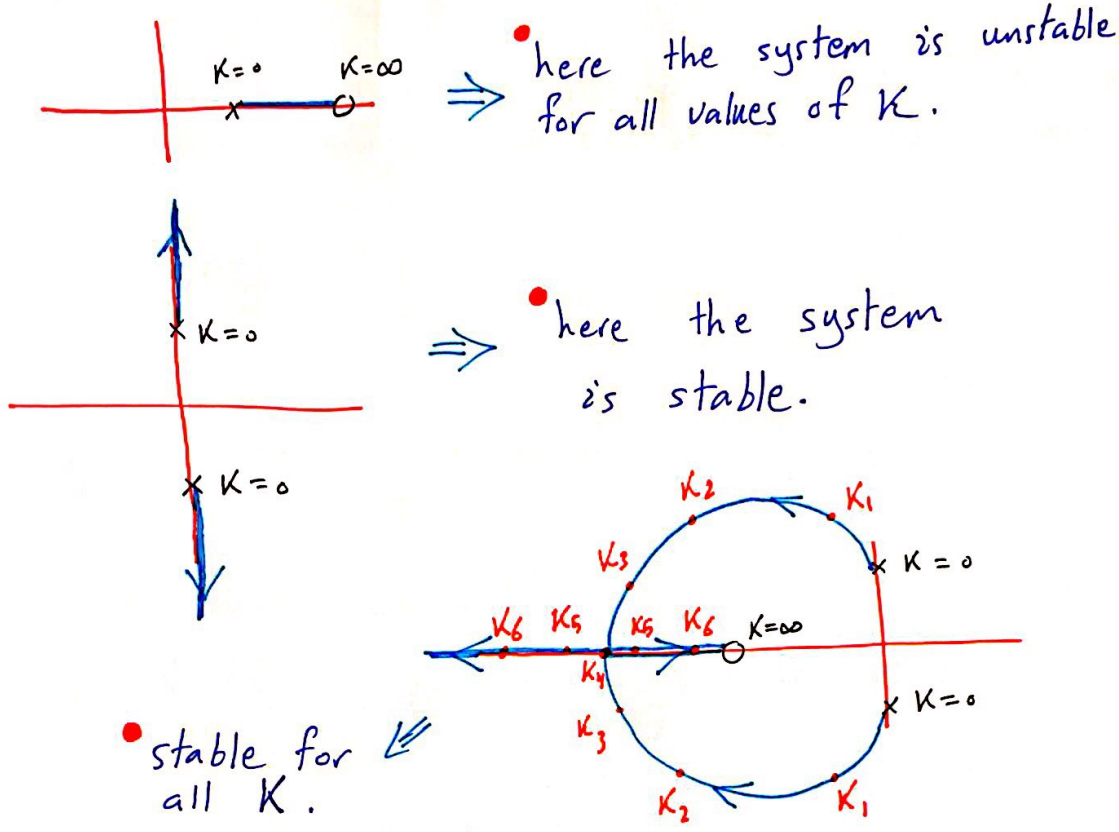 K=0 K=∞
here the system is unstable
for all values of K.
K=0
here the system
is stable.
K=0
K2 K1
K3 K=0
K6 K5 K5 K6 K=∞
K4
K=0
K3
K2 K1
stable for
all K.